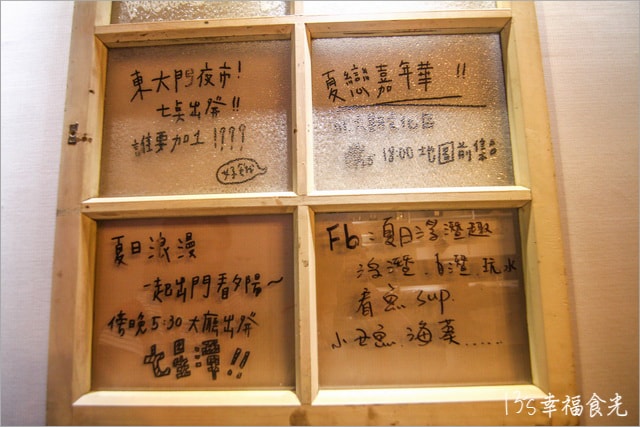 東大門夜市!
七点出發!!
誰要加1????
好餓
夏戀嘉年華 !!
18:00 地圖前集合
夏日浪漫
一起出門看夕陽~
傍晚5:30 大廳出發
七星潭!!
Fb:夏日浮潛趣
浮潛、自潛、玩水
看魚 sup.
小丑魚、海葵......
135幸福食光